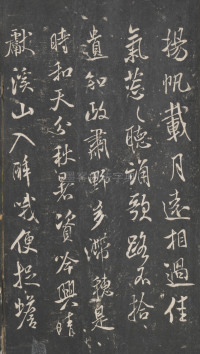 揚帆載月遠相過佳
氣葱〻聽誦歌路不拾
遺知政肅野多滯穗是
時和天分秋暑資吟興晴
獻溪山入醉哦便捉蟾